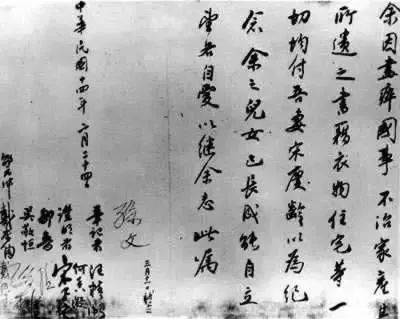 余因盡瘁國事 不治家產其
所遺之書籍衣物住宅等一
切均付吾妻宋慶齡以為紀
念余之兒女已長成能自立
望各自愛以繼余志此屬
孫文
三月十一日補簽
中華民國十四年 二月二十四
筆記者 汪精衛
何香凝
證明者 宋子文
吳敬恒